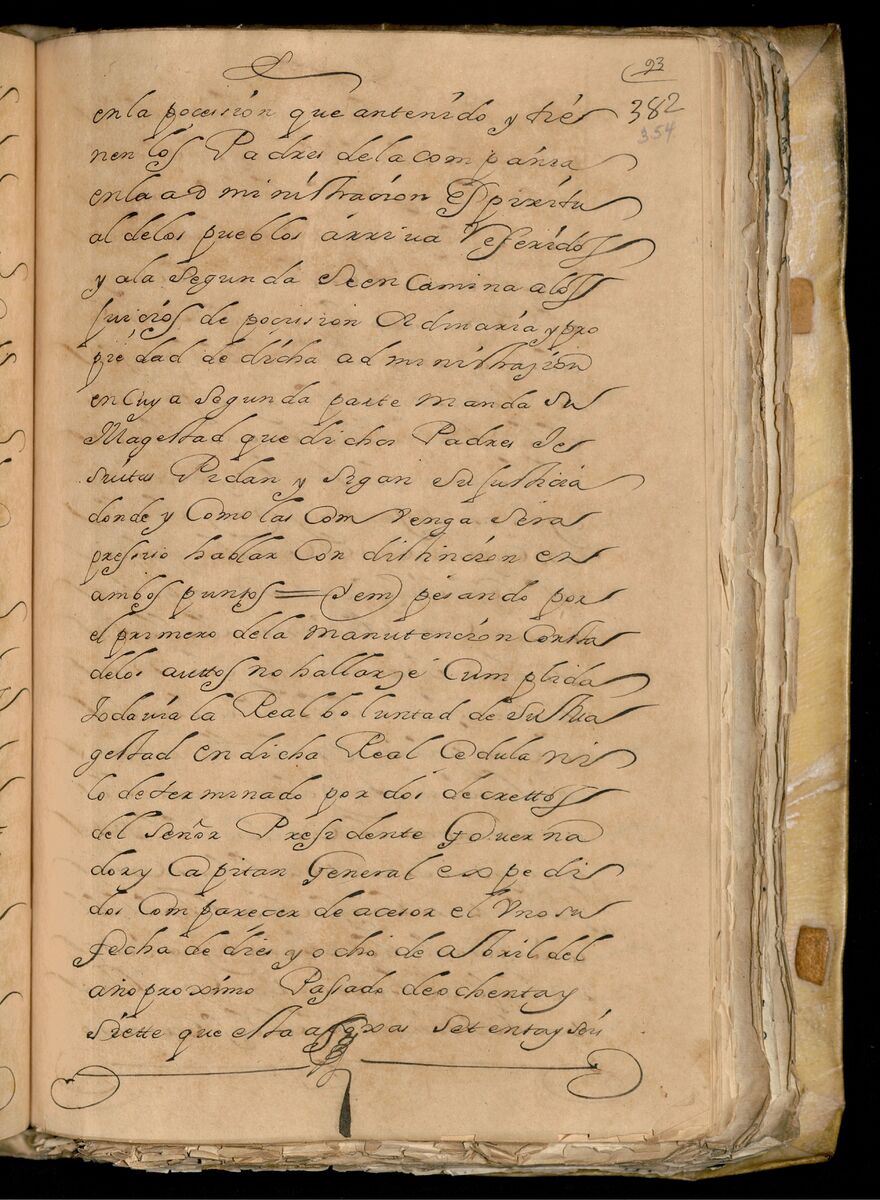 93
382
354
en la pocesion que antenido y tie
nen los Padres dela compania
enla administracion Espiritu
al delos pueblos arriva Referidos
y ala segunda se en Camina alos
juicios de pocision Ordinaria y pro
piedad de dicha administrasion
en Cuya segunda parte manda su
Magestad que dichos Padres Je
suitas Pidan y sigan su justicia
donde y Como las Com venga sera
presiso hablar Con distincion en
ambos puntos = Y empesando por
el primero dela manutencion Consta
delos auttos no hallarse Cumplida
todavia la Real boluntad de su Ma
gestad en dicha Real Cedula ni
lo determinado por dos decrettos
del señor Presidente Governa
dor y Capitan General expedi
dos Com parecer de acesor el Vno su
fecha de dies y ocho de Abril del
año proximo Passado de ochenta y
siette que esta a foxas setenta y seis